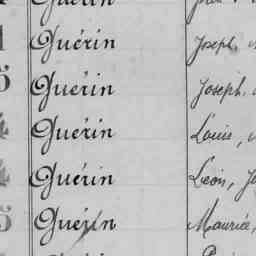 Guérin
Guérin Joseph,
Guérin Joseph.
Guérin Louis,
Guérin Léon,
Guérin Maurice,